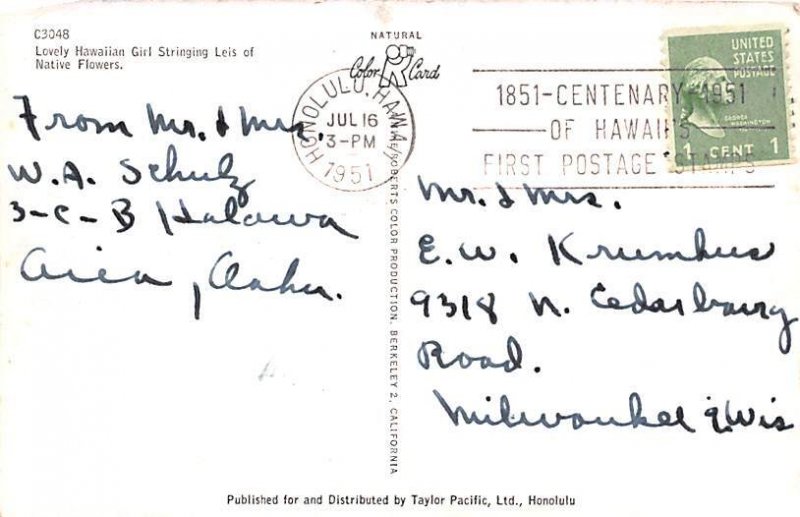 C3048
Lovely Hawaiian Girl Stringing Leis of
Native Flowers.
From Mr. & Mrs.
W.A. Schulz
3-C-B Halawa
Aiea, Oahu.
NATURAL
Color Card
HONOLULU, HAWAII
JUL 16
3-PM
1951
1851-CENTENARY-1951
OF HAWAII'S
FIRST POSTAGE STAMPS
UNITED
STATES
POSTAGE
GEORGE
WASHINGTON
1 CENT 1
ROBERTS COLOR PRODUCTION, BERKELEY 2, CALIFORNIA
Mr. & Mrs.
E.W. Krumhus
9318 N. Cedarbourg
Road.
Milwaukee 9, Wis
Published for and Distributed by Taylor Pacific, Ltd., Honolulu